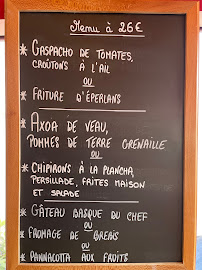 Menu à 26€
* GASPACHO DE TOMATES,
CROÛTONS À L'AIL
OU
* FRITURE D'ÉPERLANS
* AXOA DE VEAU,
POMMES DE TERRE GRENAILLE
OU
* CHIPIRONS À LA PLANCHA,
PERSILLADE, FAITES MAISON
ET SALADE
* GÂTEAU BASQUE DU CHEF
OU
* FROMAGE DE BREBIS
OU
* PANNACOTTA AUX FRUITS